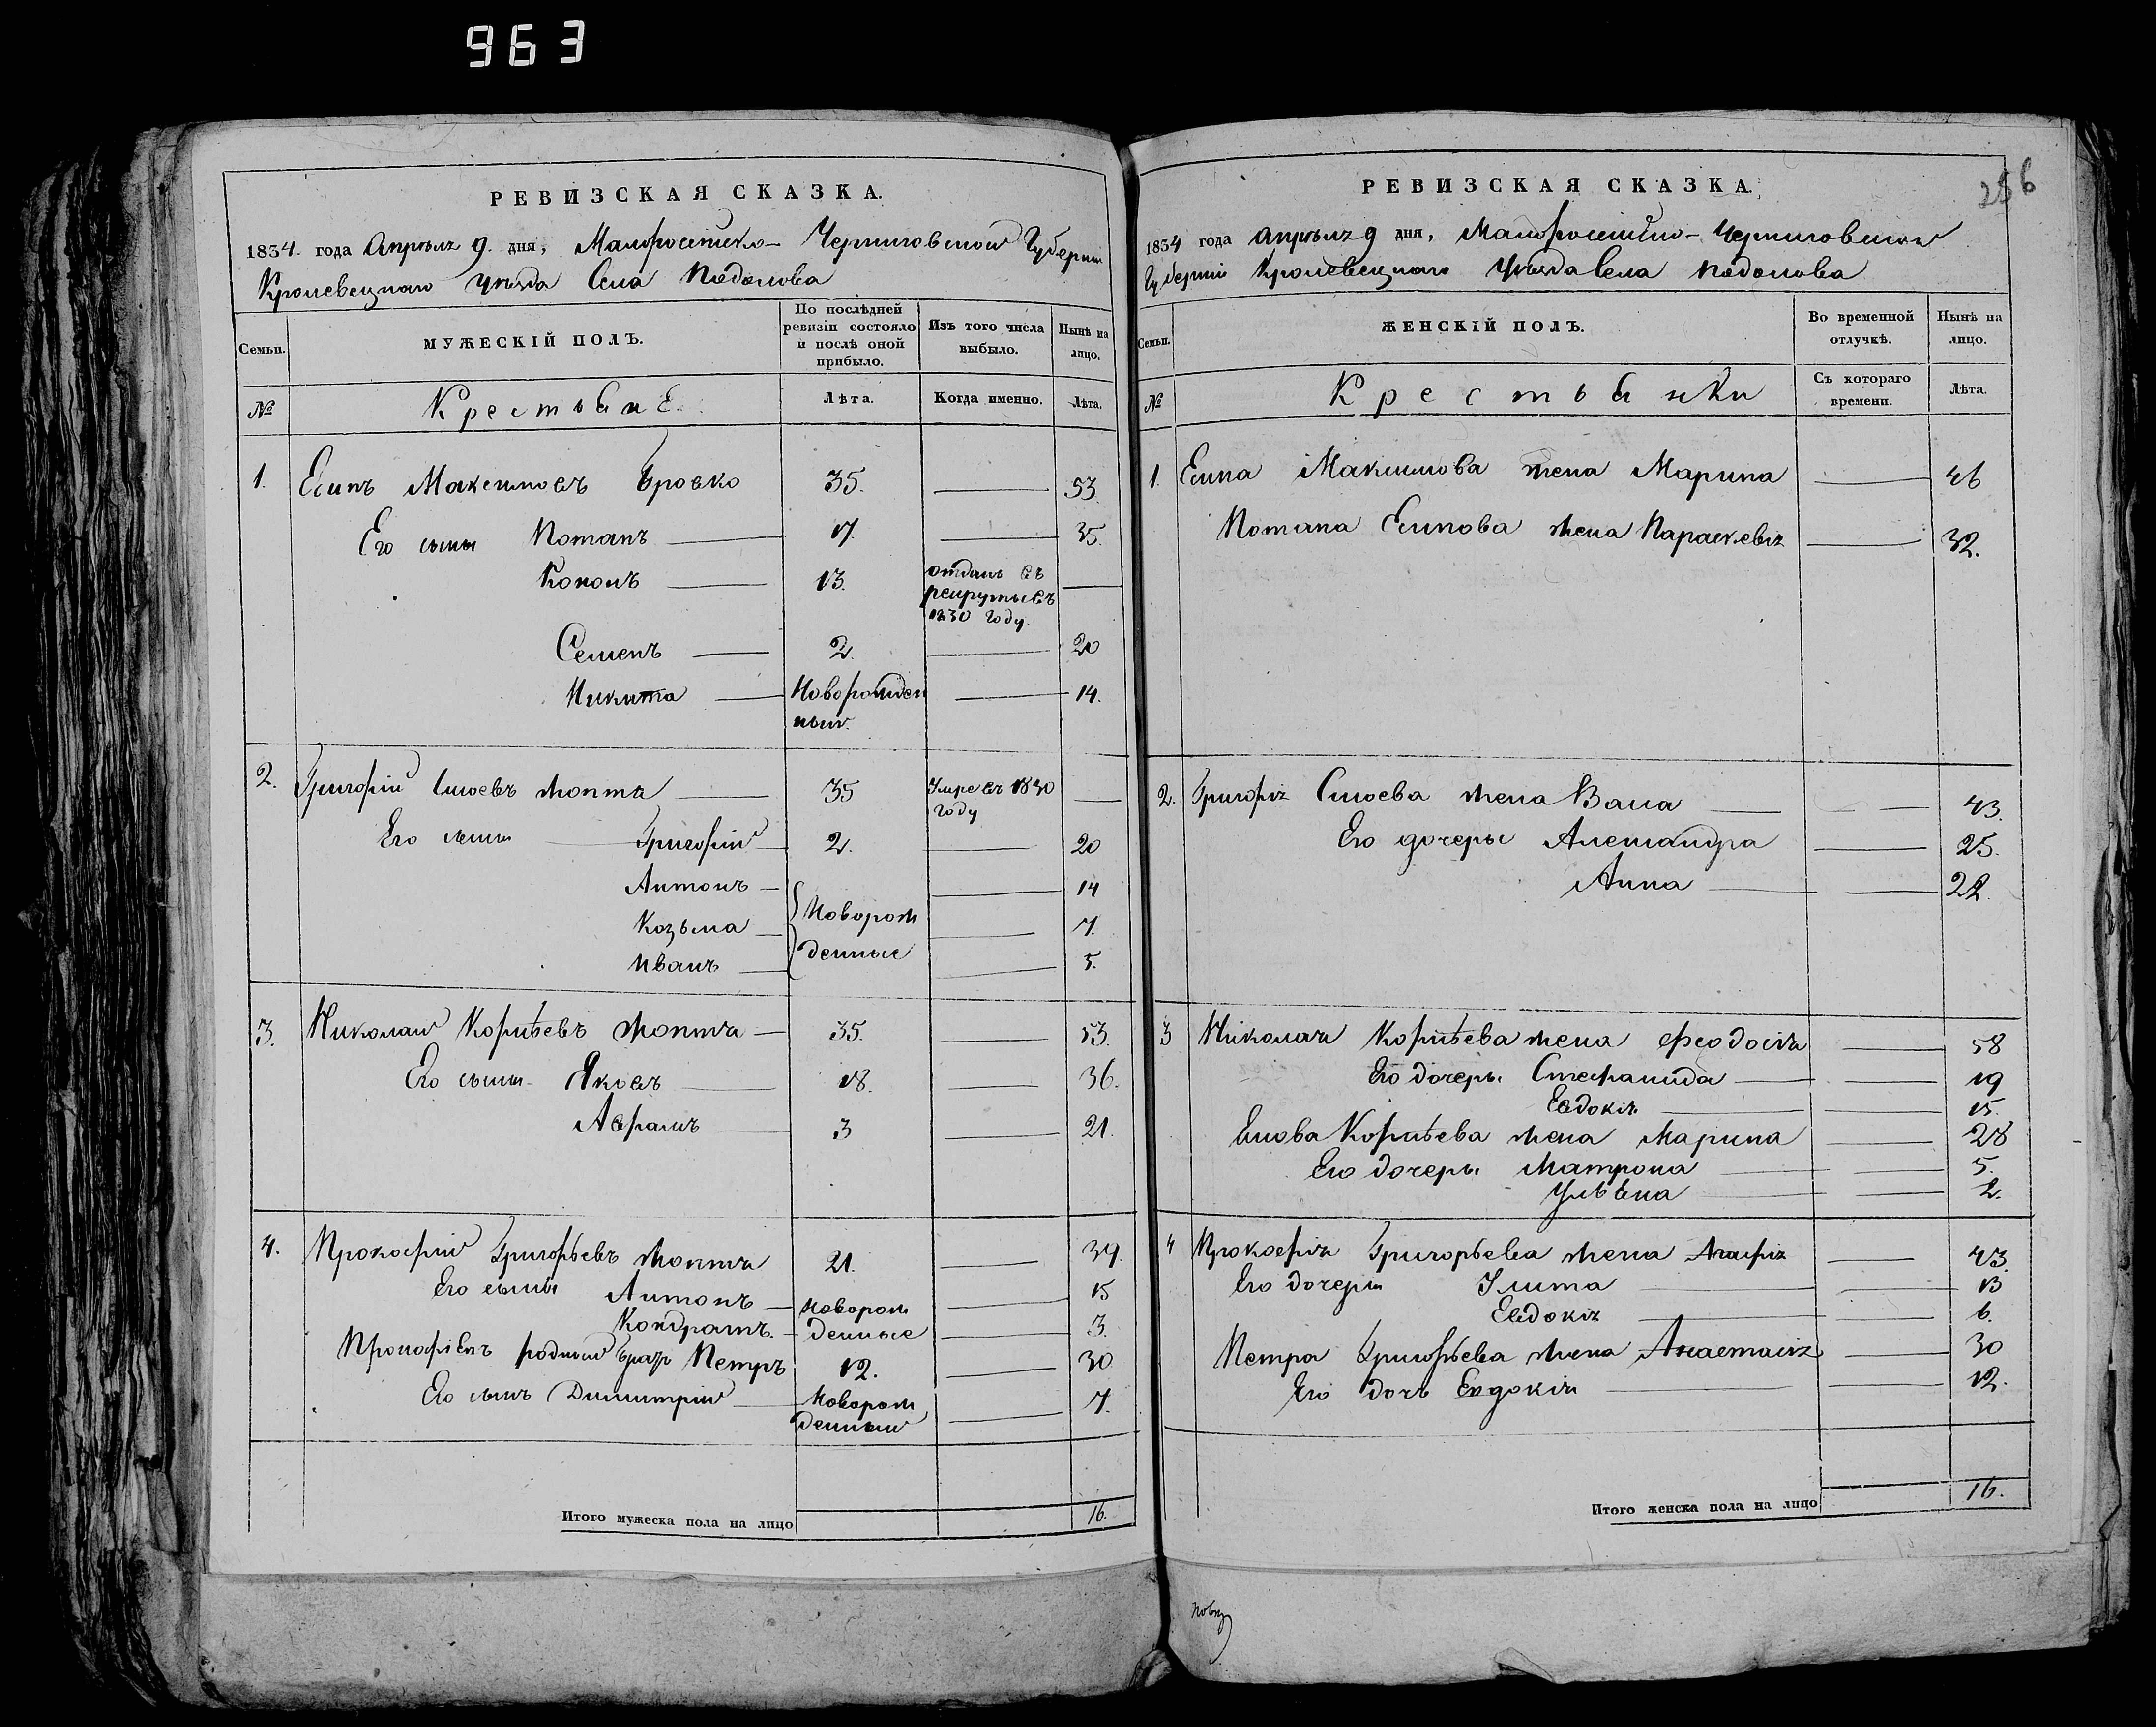 963
РЕВИЗСКАЯ СКАЗКА.
1834. года Апрѣля 9. дня, Малоросійско- Черниговской Губерніи
Кролевецкаго уѣзда Села Подолова
Семьи.
МУЖЕСКІЙ ПОЛЪ.
По послѣдней ревизіи состояло и послѣ оной прибыло.
Изъ того числа выбыло.
Нынѣ на лицо.
№
Крестьяне
Лѣта.
Когда именно.
Лѣта.
1. Есипъ Максимовъ Бровко 35. 53.
Его сыны Потапъ 17. 35.
Кононъ 13. отданъ въ рекруты въ 1830 году.
Семенъ 2. 20
Никита Новорожденный. 14.
2. Григорій Сисоевъ 35 Умре въ 1830 году
Его сыны Григорій 2. 20
Антонъ 14
Козьма Новорожденные 7.
Иванъ 5.
3. Николай Корнѣевъ 35. 53.
Его сыны Яковъ 18. 36.
Аврамъ 3 21.
4. Прокофій Григорьевъ 21. 39.
Его сыны Антонъ Новорож 15
Кондратъ. денные 3.
Прокофіевъ родный братъ Петръ 12. 30
Его сынъ Димитрій Новорожденный 7.
Итого мужеска пола на лицо 16.
256
РЕВИЗСКАЯ СКАЗКА.
1834 года Апрѣля 9 дня, Малоросійско- Черниговской
Губерніи Кролевецкаго уѣзда Села Подолова
Семьи.
ЖЕНСКІЙ ПОЛЪ.
Во временной отлучкѣ.
Нынѣ на лицо.
№
Крестьянки
Съ котораго времени.
Лѣта.
1. Есипа Максимова жена Марина 46
Потапа Есипова жена Параскевія 32.
2. Григорія Сисоева жена 43.
Его дочеры Александра 25.
Анна 22.
3 Николая Корнѣева жена Феодосія 58
Его дочеры Стефанида 19
Евдокія 15.
Корнѣева жена Марина 28
Его дочеры Матрона 5.
Ульяна 2.
4 Прокофія Григорьева жена Агафія 43.
Его дочеры Улита 13
Евдокія 6.
Петра Григорьева жена Анастасія 30
Его дочь Евдокія 12.
Итого женска пола на лицо 16.